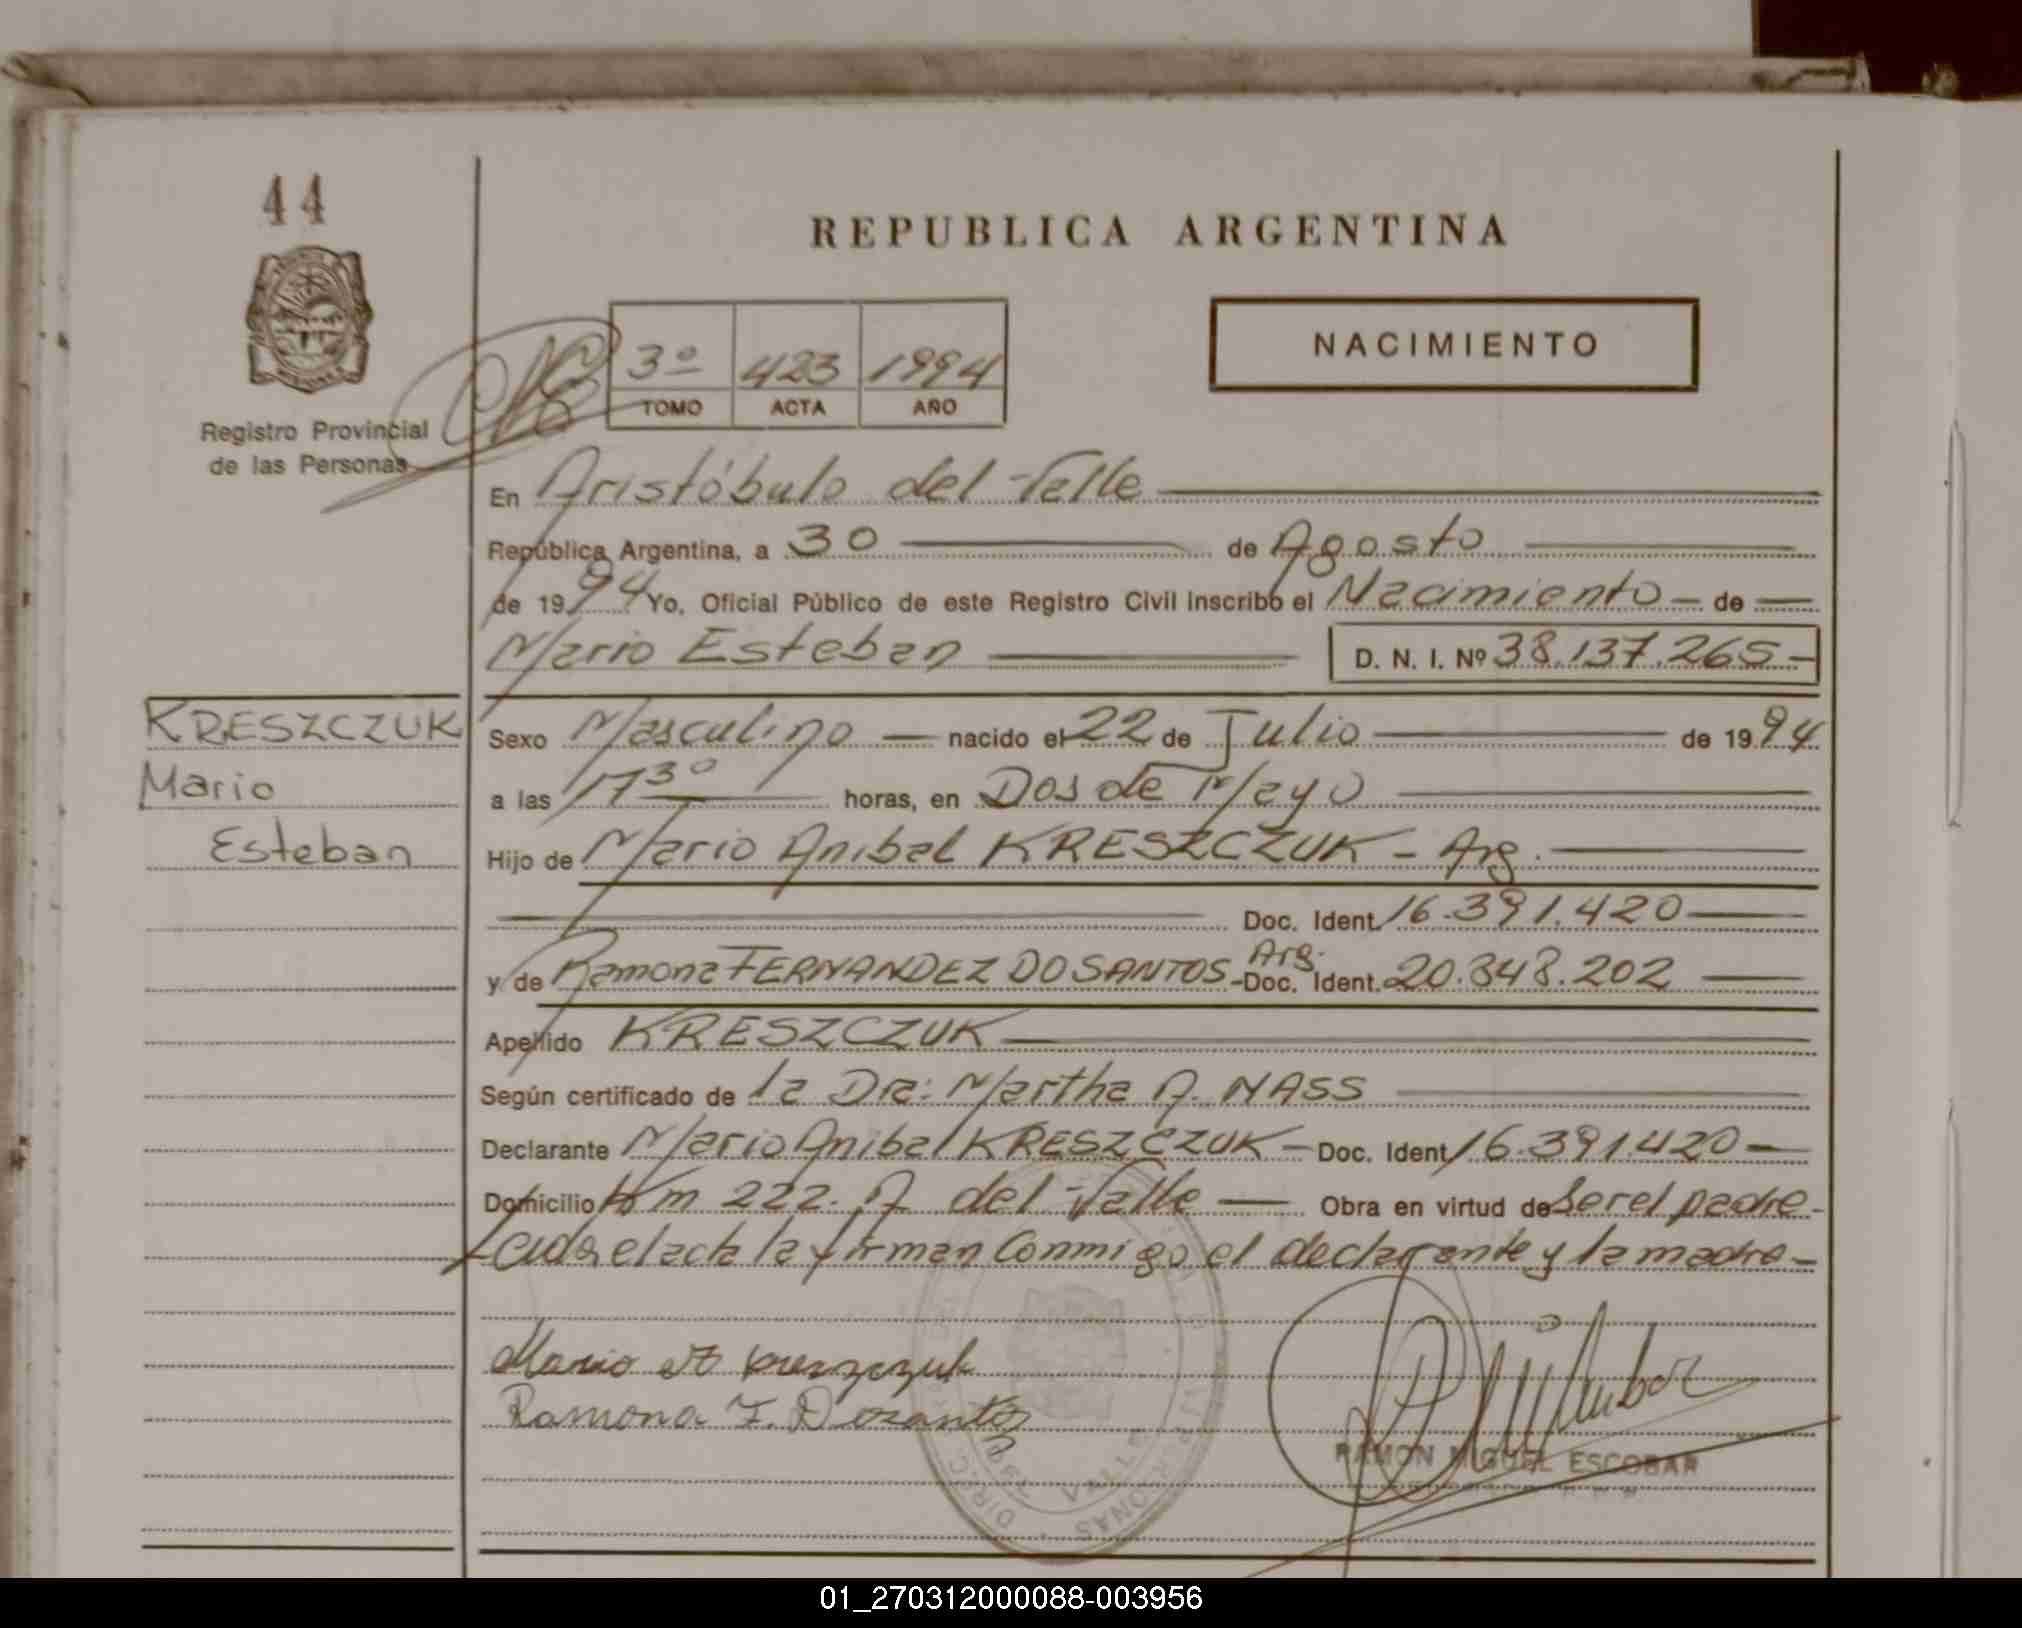 44
REPUBLICA ARGENTINA
NACIMIENTO
3º 423 1994
TOMO ACTA AÑO
Registro Provincial
de las Personas
En Aristóbulo del Valle
República Argentina, a 30 de Agosto
de 1994 Yo, Oficial Público de este Registro Civil inscribo el Nacimiento - de
Mario Esteban D. N. I. Nº 38.137.265-
KRESZCZUK
Mario
Esteban
Sexo Masculino nacido el 22 de Julio de 1994
a las 17 30 horas, en Dos de Mayo
Hijo de Mario Anibal KRESZCZUK - Arg.
Doc. Ident. 16.391.420
y de Ramona FERNANDEZ DO SANTOS - Arg. Doc. Ident. 20.848.202
Apellido KRESZCZUK
Según certificado de la Dra: Martha A. NASS
Declarante Mario Anibal KRESZCZUK - Doc. Ident 16.391.420
Domicilio Km 222. A del Valle Obra en virtud de Ser el padre-
el acta la firman Conmigo el declarante y la madre-
Mario Kreszczuk
Ramona F. Dosantos
RAMON MIGUEL ESCOBAR
01_270312000088-003956